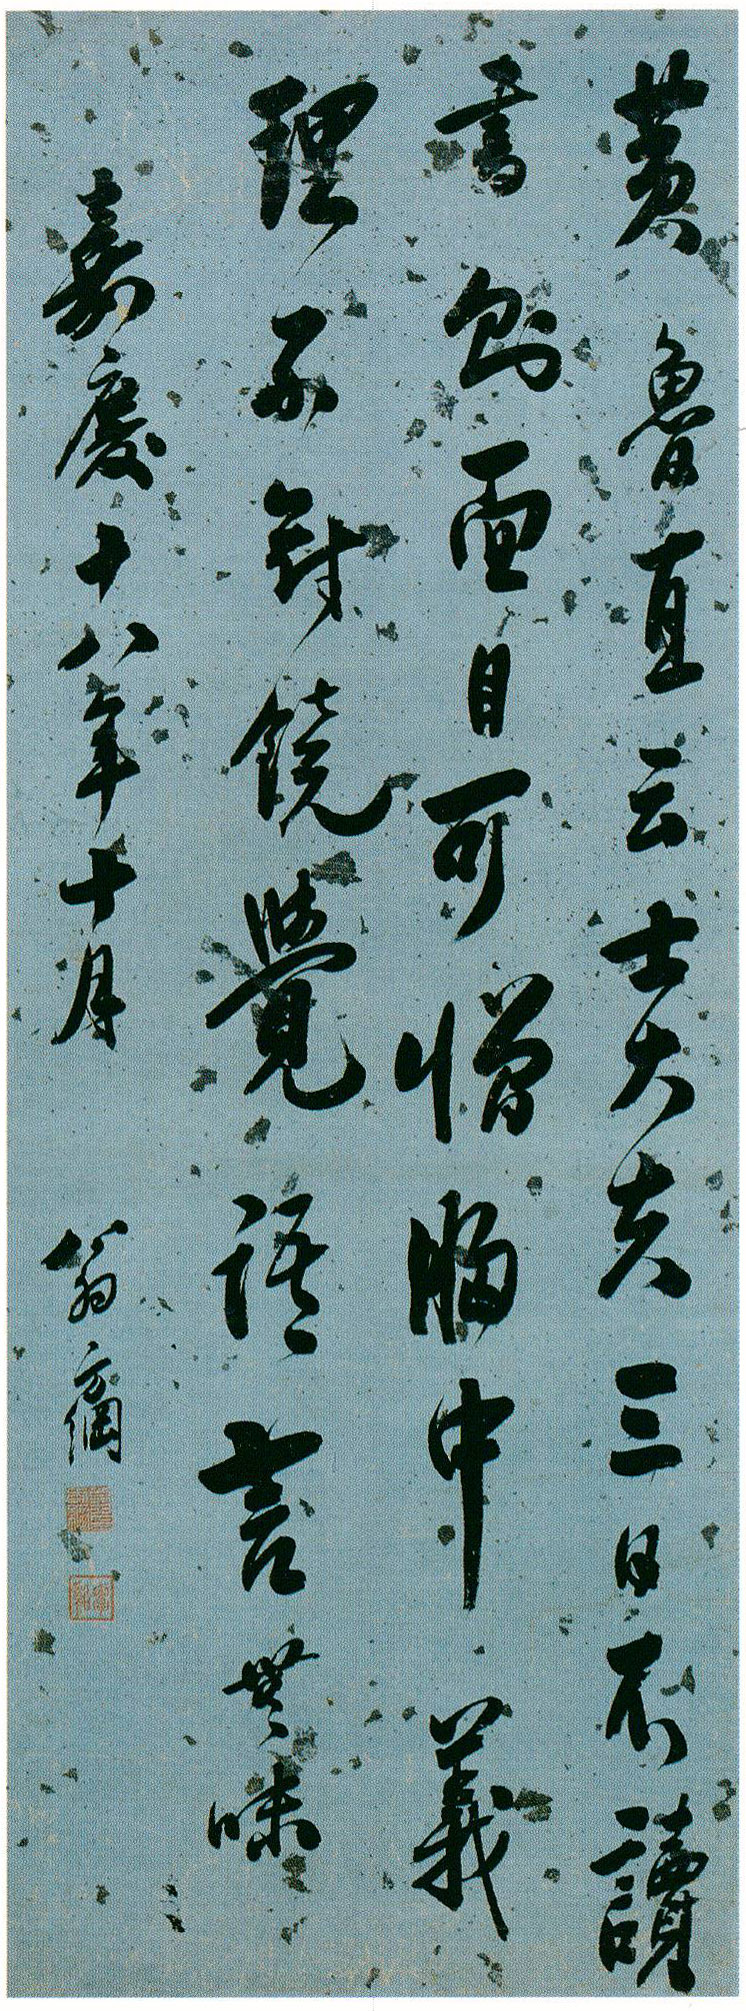 黃魯直云士大夫三日不讀
書則面目可憎胸中義
理不對鏡覺語言無味
嘉慶十八年十月 翁方綱